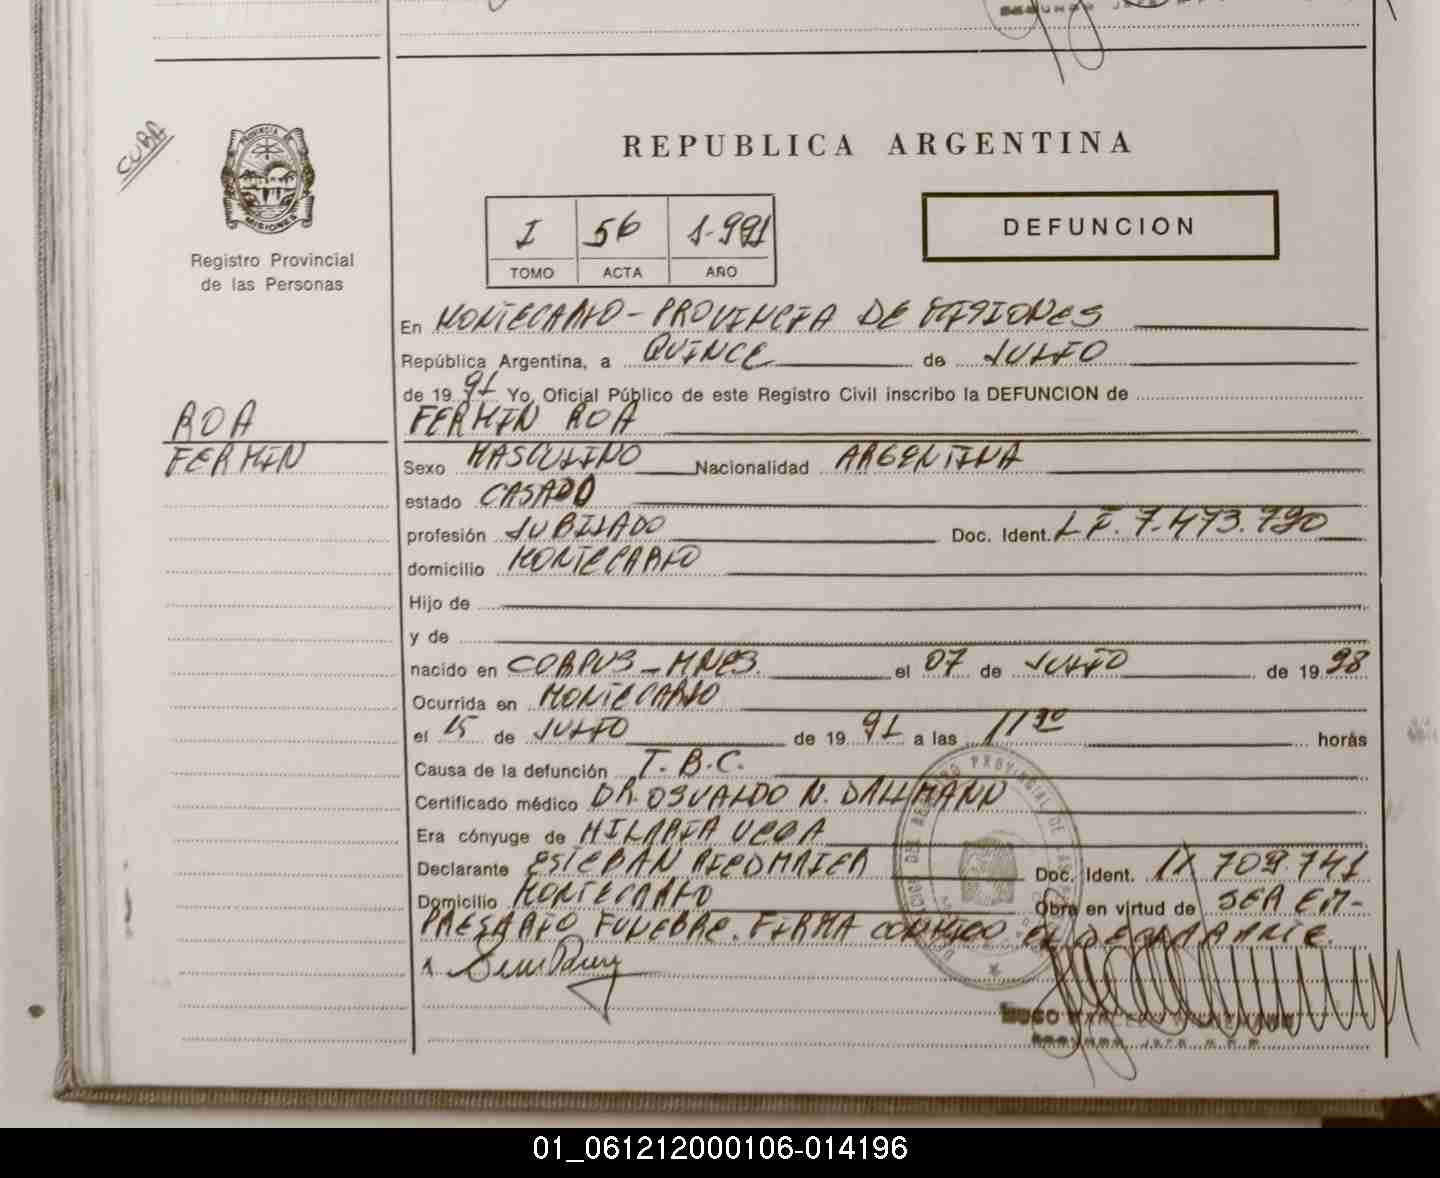 CUBA
PROVINCIA DE
MISIONES
Registro Provincial
de las Personas
REPUBLICA ARGENTINA
I 56 1-991
TOMO ACTA AÑO
DEFUNCION
En MONTECARLO - PROVINCIA DE MISIONES
República Argentina, a QUINCE de JULIO
de 1991 Yo, Oficial Público de este Registro Civil inscribo la DEFUNCION de
ROA
FERMIN ROA
FERMIN
Sexo MASCULINO Nacionalidad ARGENTINA
estado CASADO
profesión JUBILADO Doc. Ident. L.E. 7.473.790
domicilio MONTECARLO
Hijo de
y de
nacido en CORPUS - MNES. el 07 de JULIO de 1998
Ocurrida en MONTECARLO
el 15 de JULIO de 1991 a las 11 30 horas
Causa de la defunción T.B.C.
Certificado médico DR. OSVALDO N. DALLMANN
Era cónyuge de HILARIA VEGA
Declarante ESTEBAN RIEDMAIER Doc. Ident. IX 709.741
Domicilio MONTECARLO Obra en virtud de SER EM-
PRESARIO FUNEBRE. FIRMA CONMIGO EL DECLARANTE.
HUGO
01_061212000106-014196